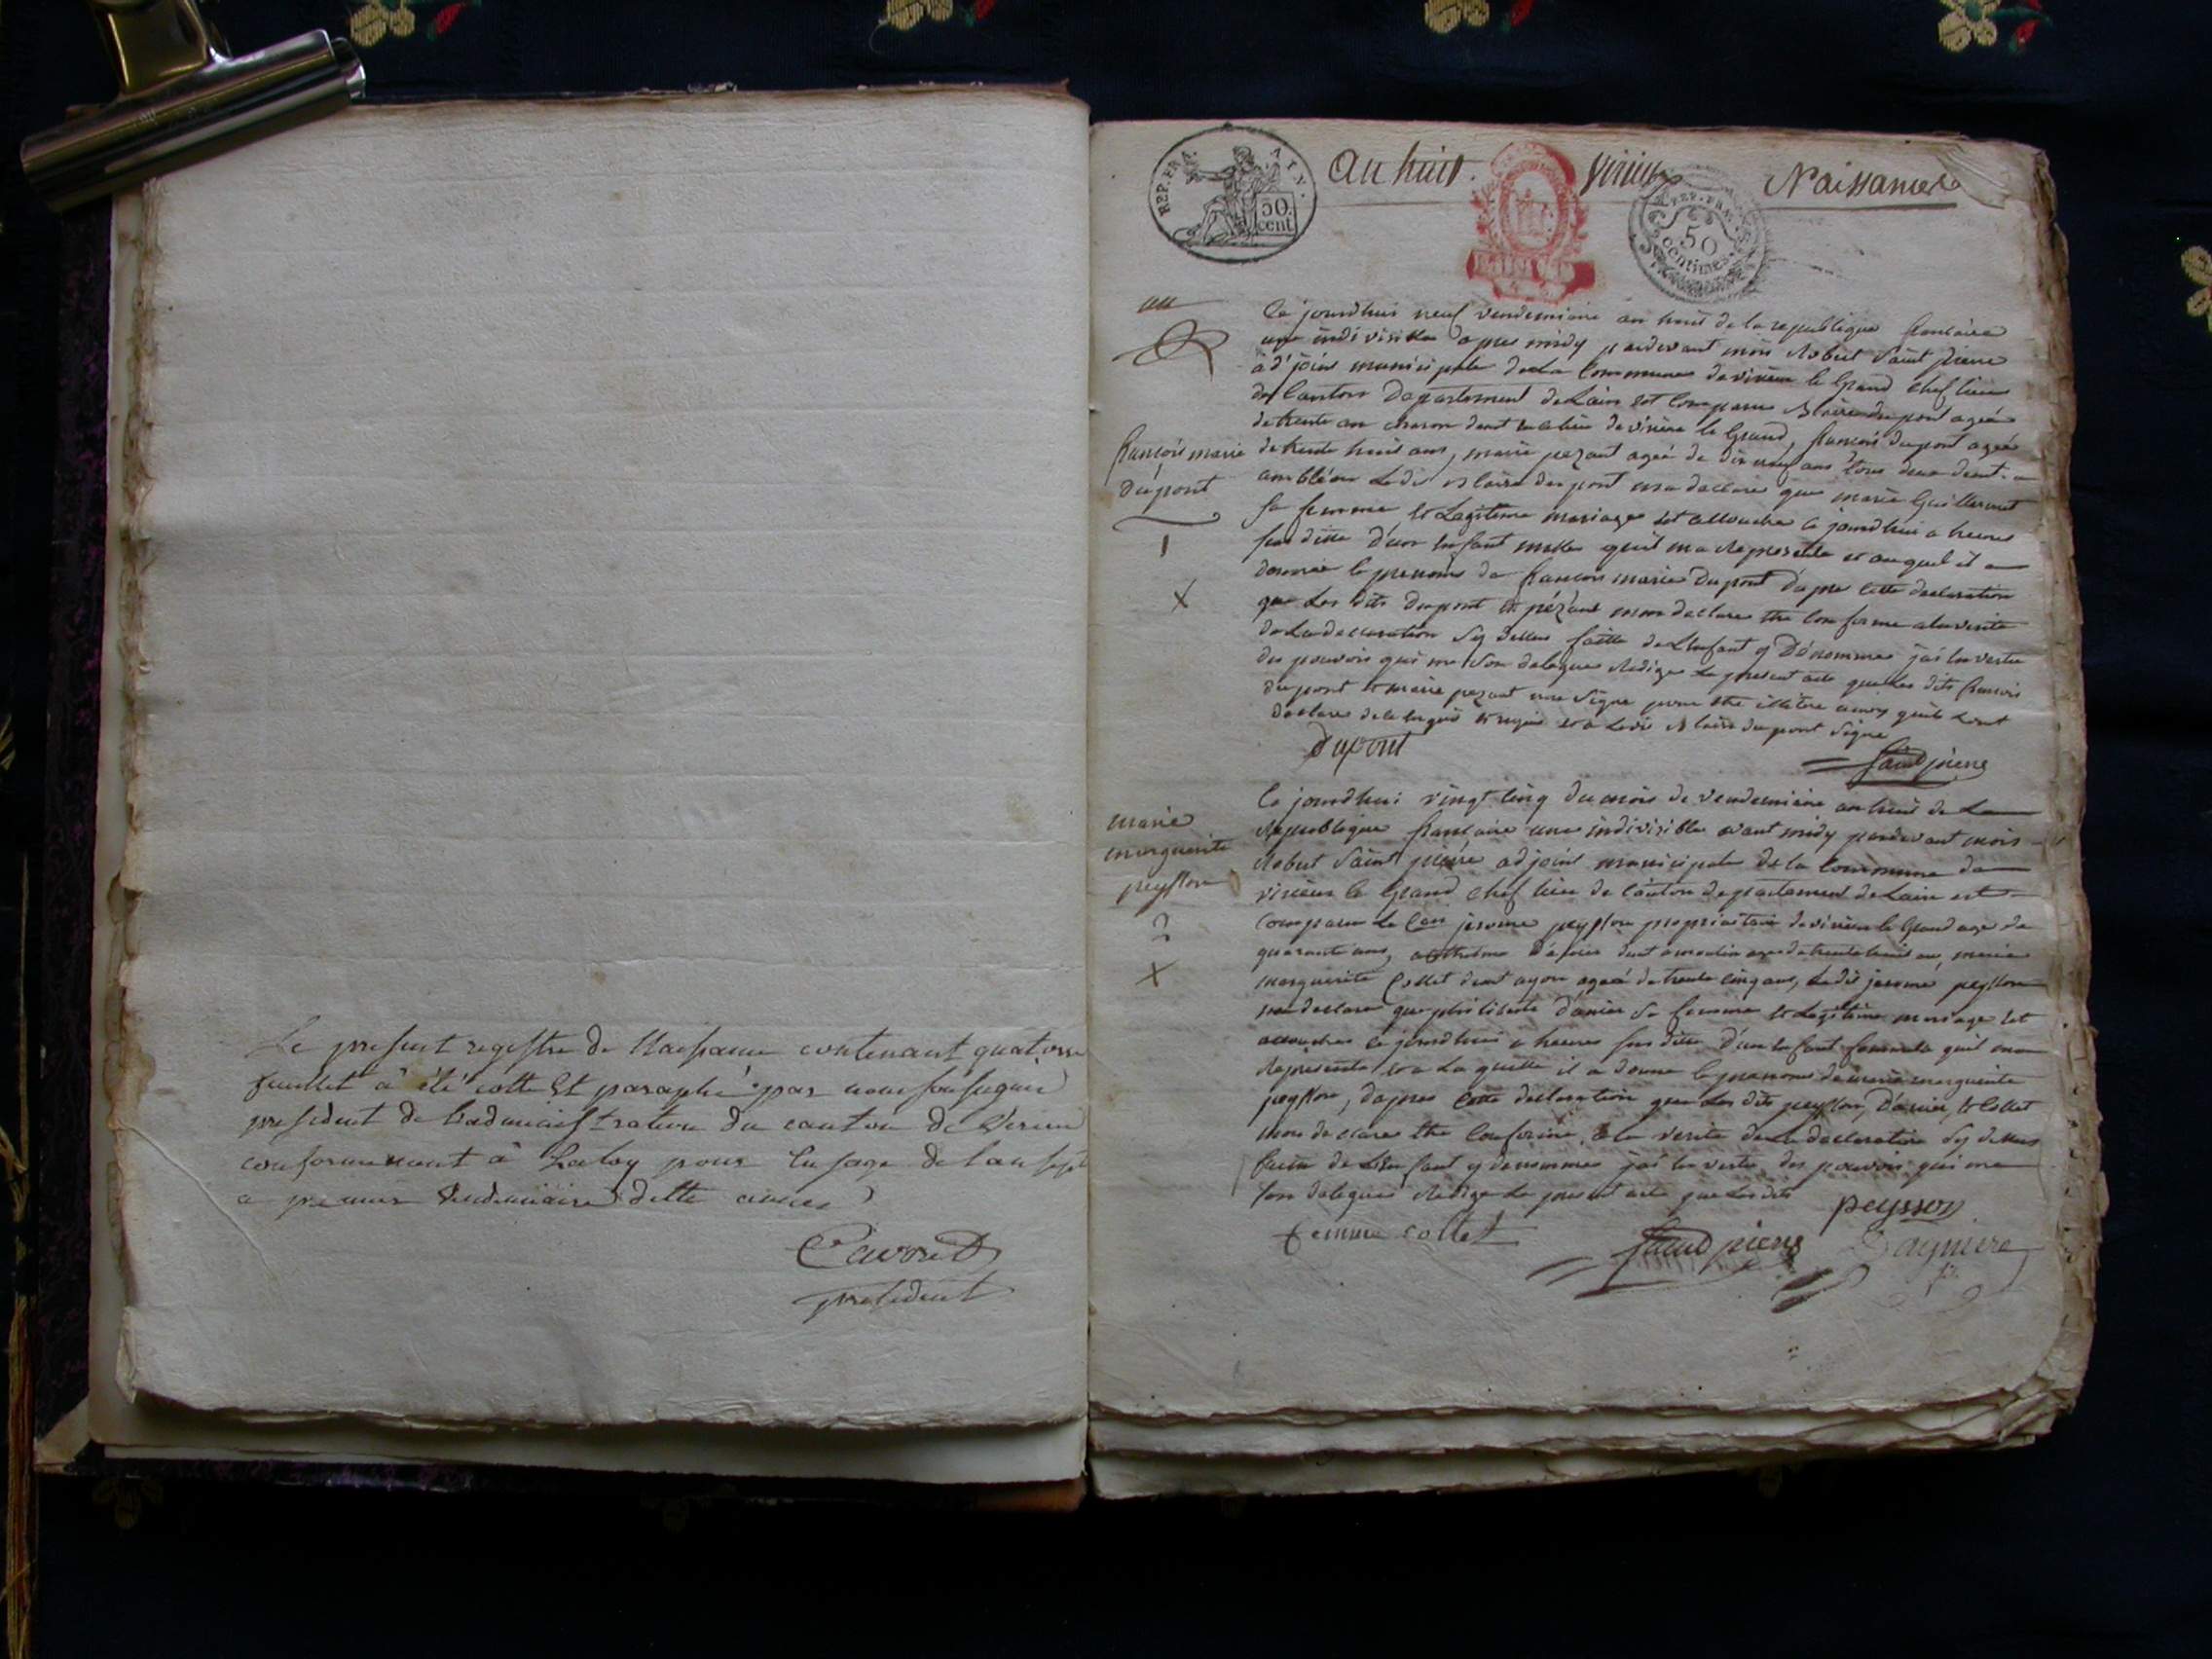 Le present registre de Naissance contenant quatorse
feuillet a été cotté Et paraphé par nous soussigné
president de L'administration du canton de Virieu
conformement à La loy pour lusage de l'an sept
a premier Vendemiaire ditte année
Cavoret
president
REP. FRA. AIN.
50
cent
an huit. Virieu Naissances
REP. FRA.
50
centimes
Ce jourdhui neuf vendemiaire an huit de la republique francaise
une indivisible apres midy pardevant mois Robert Saint pierre
adjoint municipale de la Commune de virieu le Grand chef lieu
de Canton Departement de Lain est Comparu Claire dupont ageé
de trente an de virieu le Grand, francois dupont ageé
françois marie
dupont
1
X
de trente huit ans, marie pezant ageé de dix neuf ans tous deux
Ledit Claire dupont ma declaré que marie Guillermet
sa femme et Legitime mariage est accouchee ce jourdhui a heures
susditte d'un Enfant malle quil ma Represente et auquel il a
donnee le prenoms de francois marie Dupont D'apre cette declaration
que Les dits Dupont et pézant mon declare etre Conforme a la verite
de La declaration Sy dessus faitte de L'Enfant y Dénommee j'ai En vertu
des pouvoirs qui me Son delegue Redige Le present acte que Les dits francois
dupont et marie pezant nne Signe pour etre illitere ainsy quils Lont
Declare de ce Enquis et requis et a Ledit Claire dupont Signe
dupont
Saint pierre
marie
marguerite
peysson
2
X
Ce jourdhui vingt cinq du mois de Vendemiaire an huit de La
Republique francaise une indivisible avant midy pardevant mois
Robert Saint pierre adjoint municipale de la Commune de
virieu le Grand chef lieu de Canton departement de Lain est
Comparu Le Cen jerome peysson propriaitaire de virieu le Grand age de
quarante ans, anthelme age de trente huit an, marie
marguerite Collet ageé de trente cinq ans, Ledit jerome peysson
ma declare que philiberte D'anier Sa femme et Legitime mariage est
accouchee ce jourdhui a heures susditte D'un Enfant femmelle quil ma
Represente et a La quelle il a donne le prenoms de marie marguerite
peysson, dapres Cette declaration que Les dits peysson, D'anier et Collet
mon declare etre Conforme a la verite de La declaration Sy dessus
faitte de L'Enfant y denommee jai En vertu des pouvoirs qui me
Son delegues Redige Le present acte que Les dits
peysson
femme collet
Saint pierre